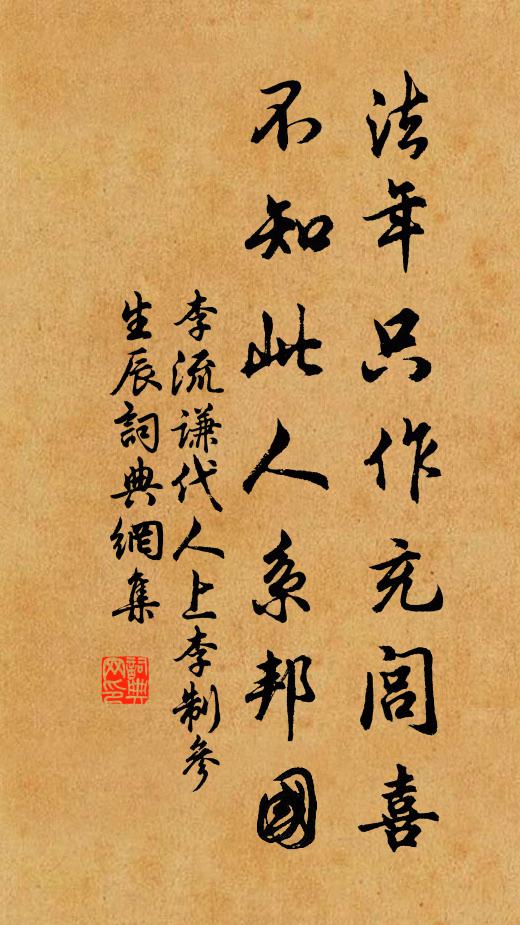 法年只作充闾喜
不知此人系邦國
李流谦代人上李制參
生辰詞典網集
詞典网印